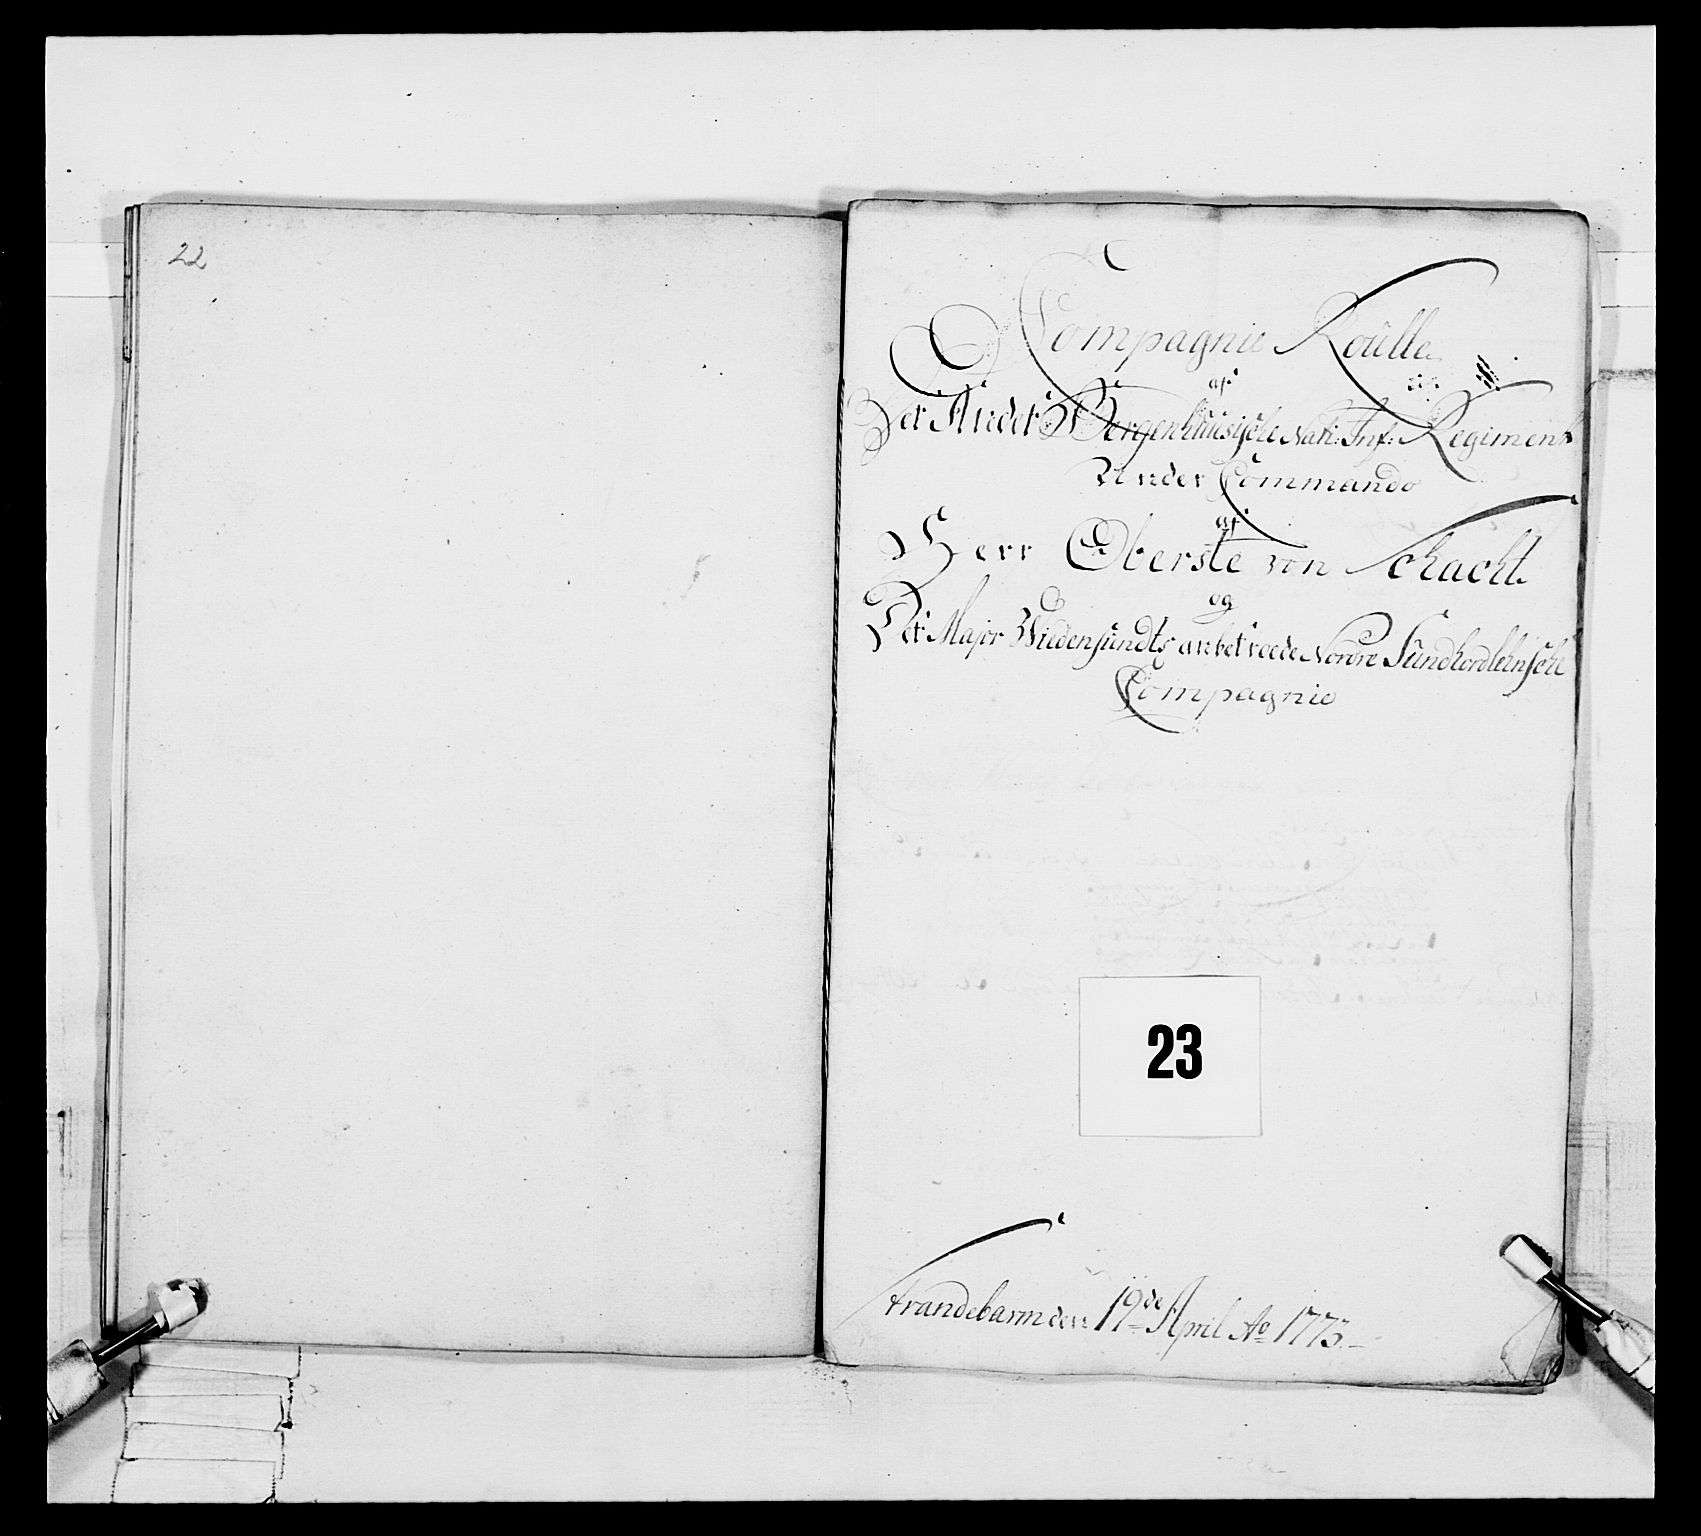 22
Compagnie Roülle
af
Det Andet Bergenhuusische Nati: Inf: Regiment
Under Commando
af
Herr Oberste von Schacht
og
Det Major Wiedensündts anbetroede Nordre Sündhordlehnsche
Compagnie
23
Strandebarm den 19de April Ao 1773.